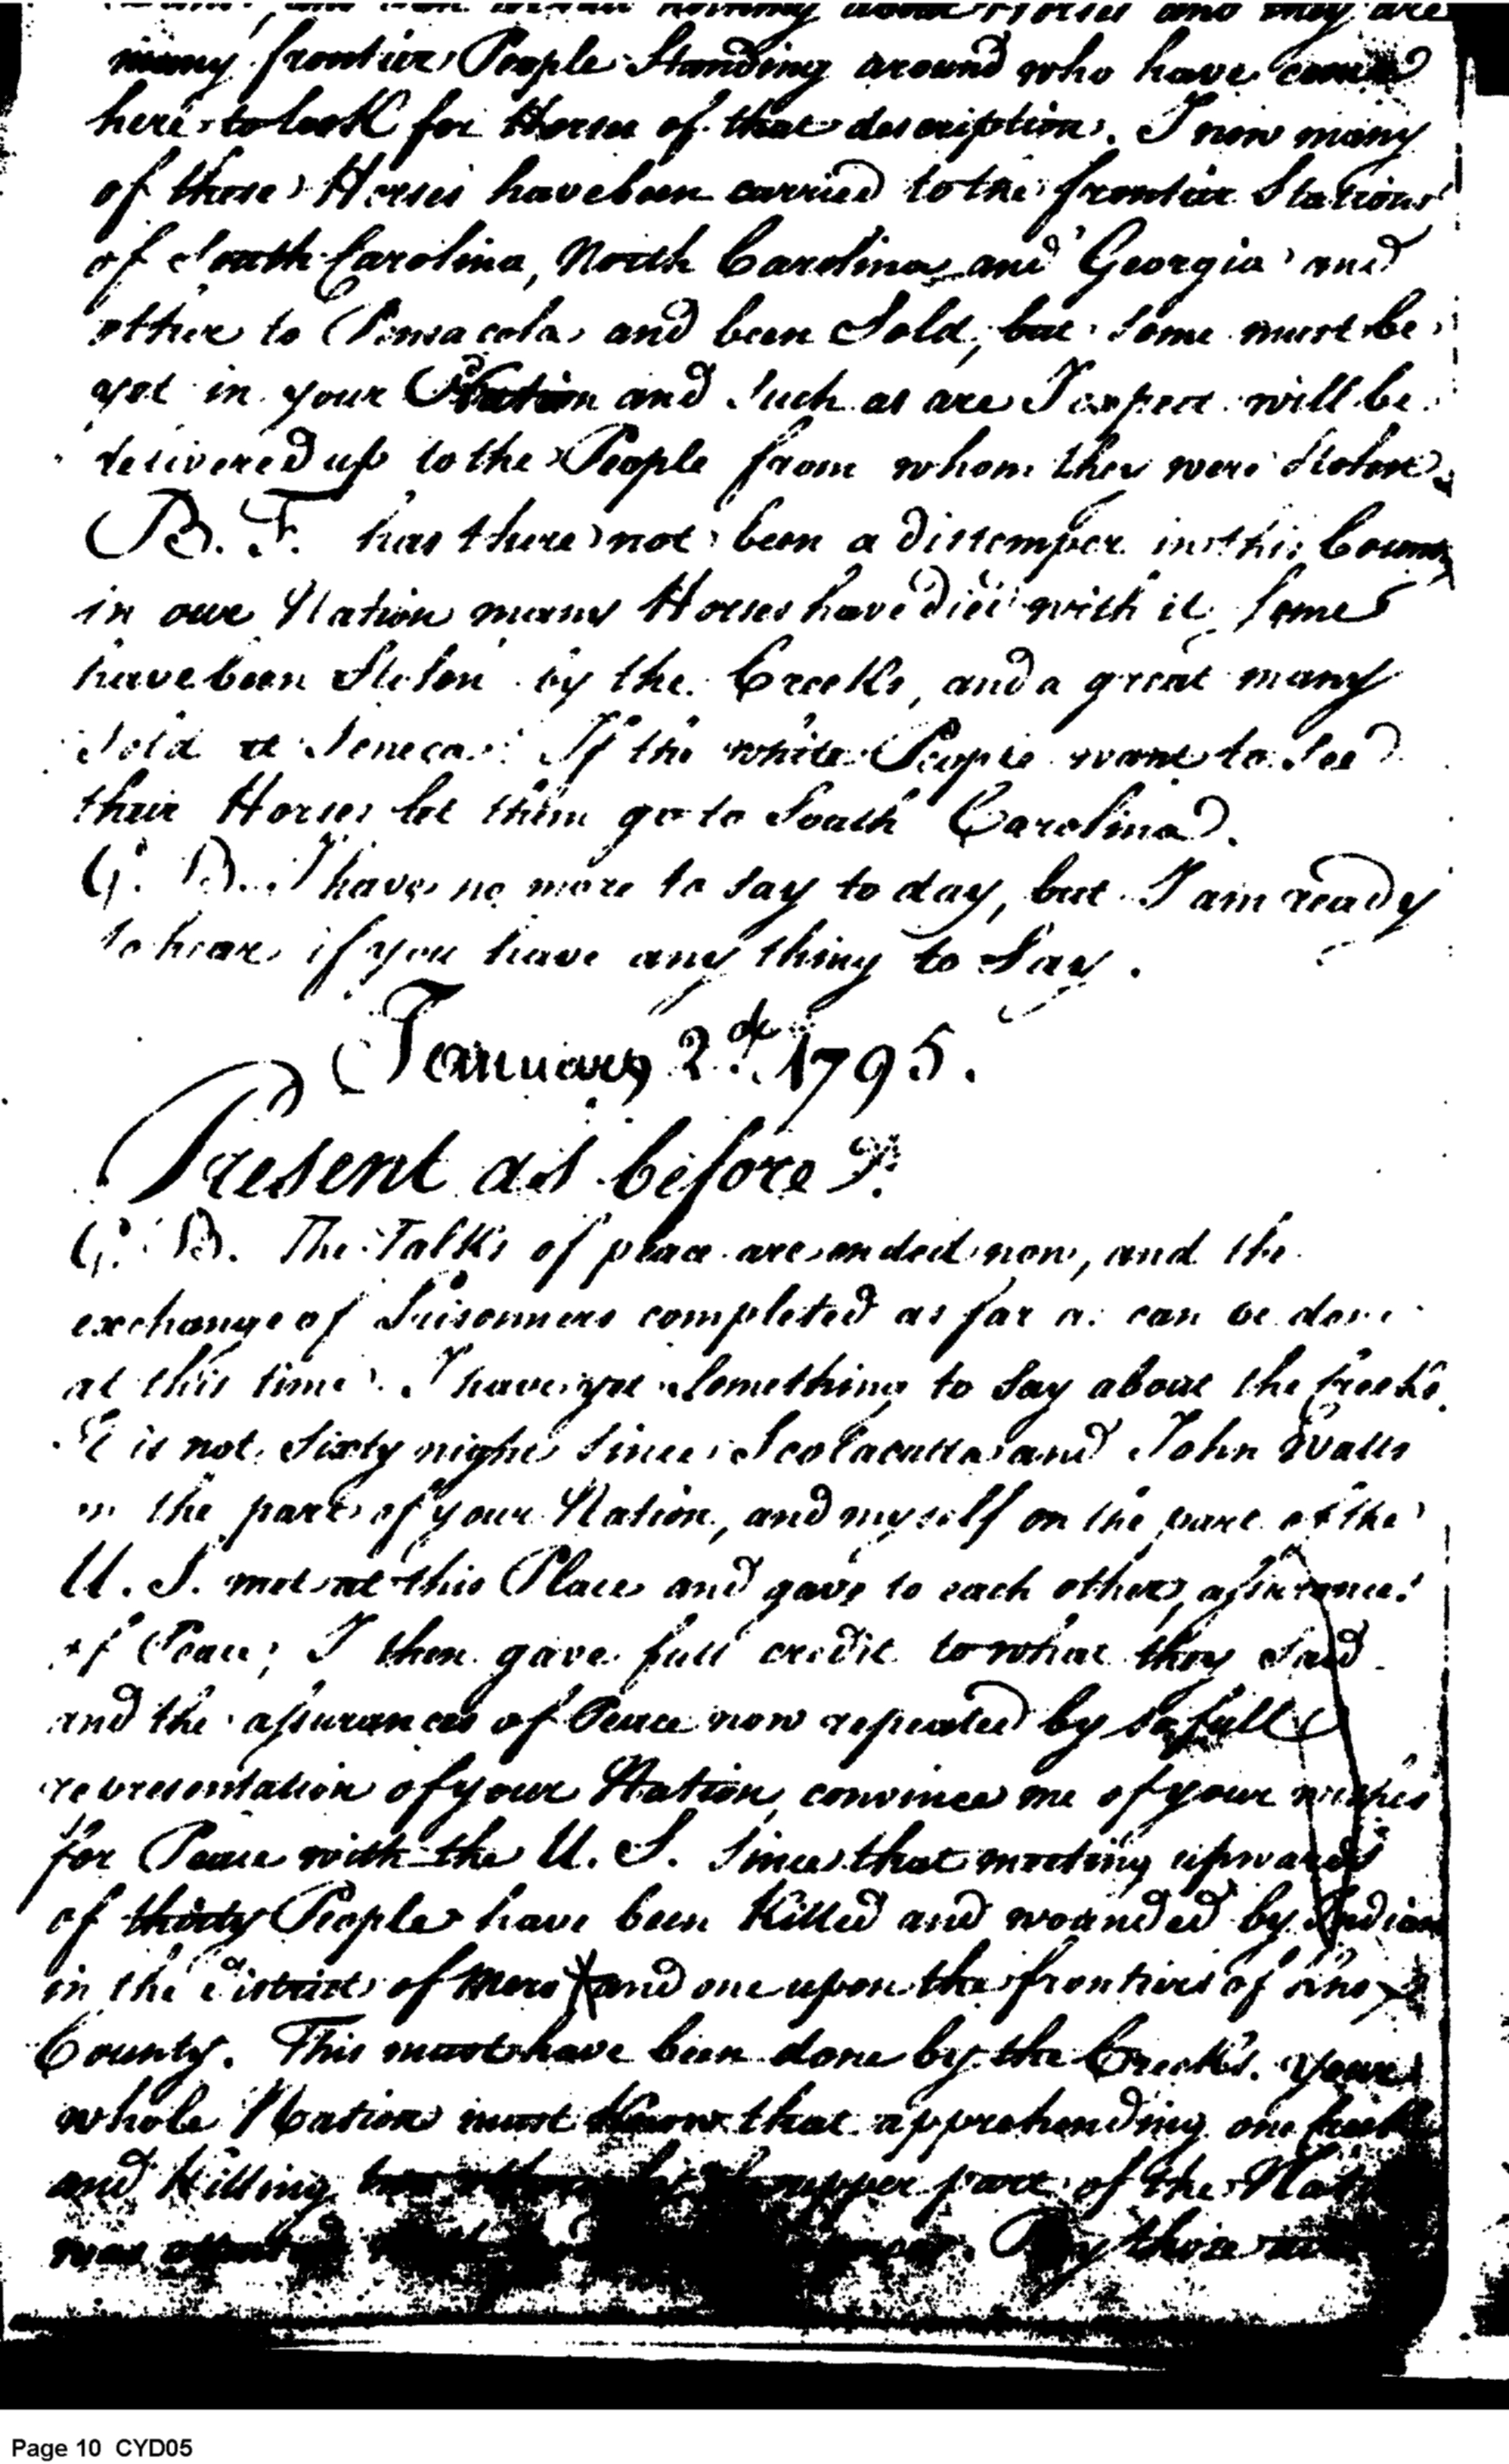 nothing about Horses and they are
many frontier People Standing around who have come
here to look for Horses of that description. I now many
of those Horses have been carried to the frontier Stations
of South Carolina, North Carolina and Georgia and
other to Pensacola and been Sold, but some must be
yet in your Nation and such as are I expect will be
delivered up to the People from whom they were stolen.
B. F. has there not been a distemper in this County
in our Nation many Horses have died with it some
have been Stolen by the Creeks, and a great many
Sold at Seneca. If the white People want to see
their Horses let them go to South Carolina.
G. B. I have no more to say to day, but I am ready
to hear if you have any thing to Say.
January 2d. 1795.
Present as before
G. B. The Talks of peace are ended now, and the
exchange of Prisonners completed as far as can be done
at this time. I have yet something to say about the Creeks.
It is not sixty nights since Scolacutta and John Watts
on the part of your Nation, and myself on the part of the
U. S. met at this Place and gave to each other, assurances
of Peace; I then gave full credit to what they said
and the assurances of Peace now repeated by so full
representation of your Nation, convinces me of your wishes
for Peace with the U. S. Since that meeting upwards
of thirty People have been Killed and wounded by Indians
in the District of Mero and one upon the frontiers of Knox
County. This must have been done by the Creeks. your
whole Nation must Know that apprehending one Creek
and Killing upper part of the
was By those
Page 10 CYD05